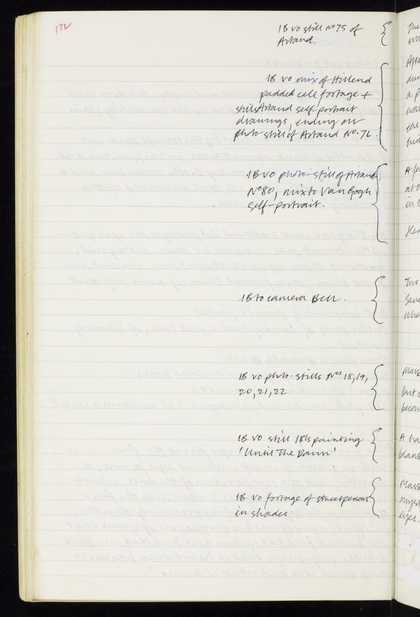 172
IB vo still Nº75 of
Artaud.
IB vo mix of Hillend
padded cell footage +
stills Artaud self-portrait
drawings, ending on
photo-still of Artaud Nº.76
IB vo photo-still of Artaud
Nº80, mix to Van Gogh
self-portrait.
IB to camera Bell.
IB vo photo-stills Nºs 18, 19,
20, 21, 22
IB vo still IB's painting
'Until The Dawn'
IB vo footage of
in shades